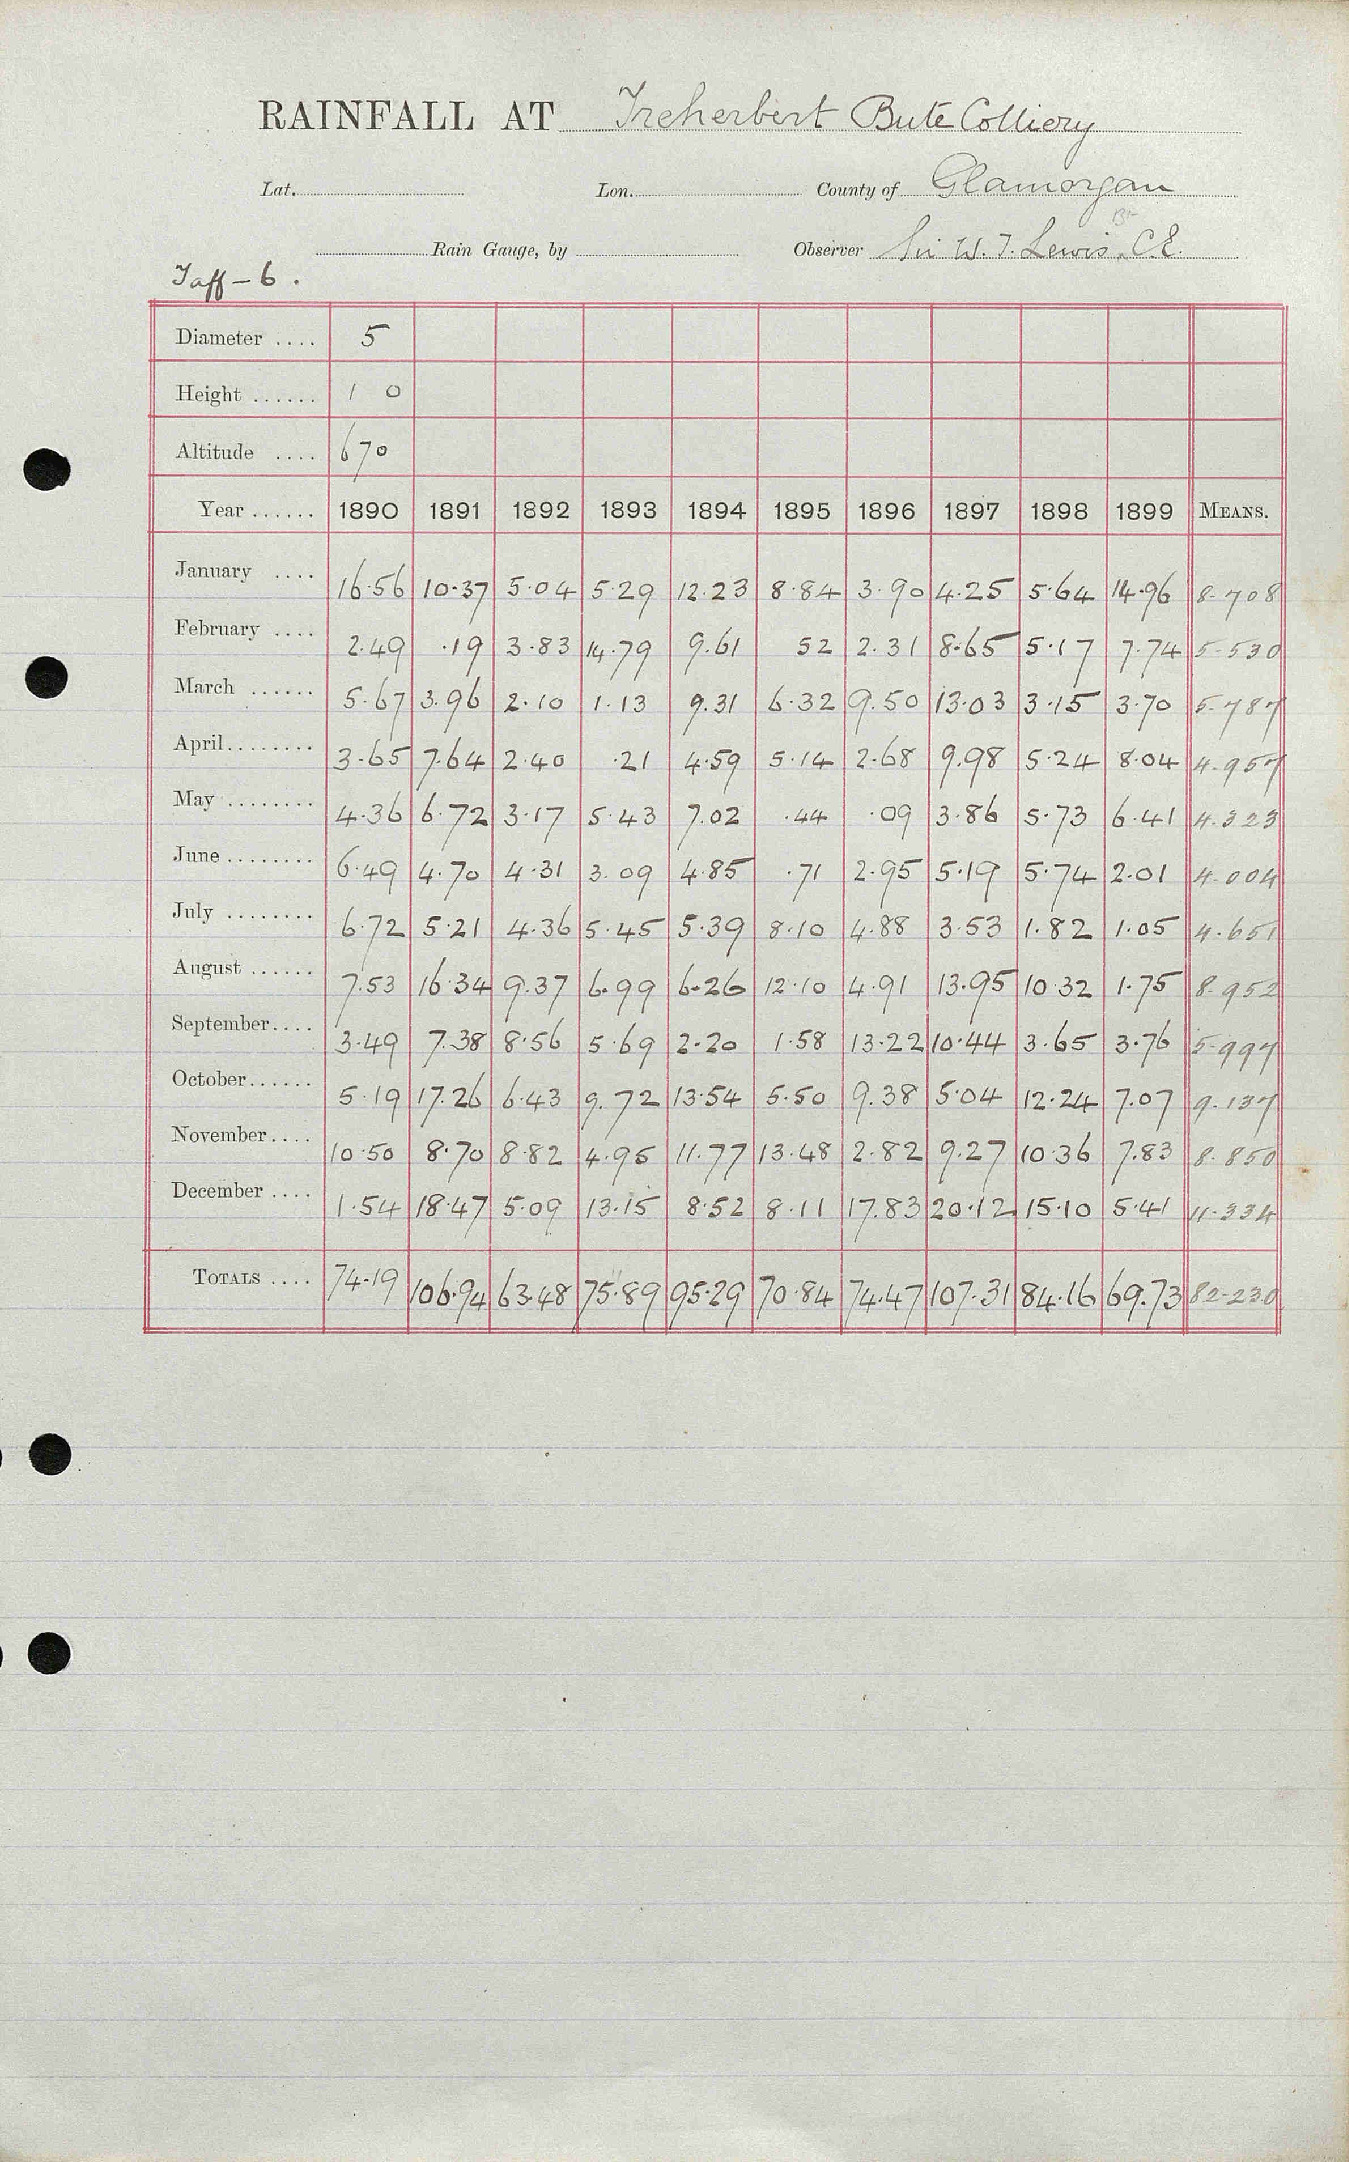 RAINFALL AT Treherbert Bute Colliery
Lat. Lon. County of Glamorgan
Rain Gauge, by Observer Sir W. T. Lewis, Bt C.E.
Taff-6.
Diameter .... 5
Height ...... 1 0
Altitude .... 670
Year ...... 1890 1891 1892 1893 1894 1895 1896 1897 1898 1899 MEANS.
January .... 16.56 10.37 5.04 5.29 12.23 8.84 3.90 4.25 5.64 14.96 8.708
February .... 2.49 .19 3.83 14.79 9.61 52 2.31 8.65 5.17 7.74 5.530
March ...... 5.67 3.96 2.10 1.13 9.31 6.32 9.50 13.03 3.15 3.70 5.787
April........ 3.65 7.64 2.40 .21 4.59 5.14 2.68 9.98 5.24 8.04 4.957
May ........ 4.36 6.72 3.17 5.43 7.02 .44 .09 3.86 5.73 6.41 4.323
June ........ 6.49 4.70 4.31 3.09 4.85 .71 2.95 5.19 5.74 2.01 4.004
July ........ 6.72 5.21 4.36 5.45 5.39 8.10 4.88 3.53 1.82 1.05 4.651
August ...... 7.53 16.34 9.37 6.99 6.26 12.10 4.91 13.95 10.32 1.75 8.952
September.... 3.49 7.38 8.56 5.69 2.20 1.58 13.22 10.44 3.65 3.76 5.997
October...... 5.19 17.26 6.43 9.72 13.54 5.50 9.38 5.04 12.24 7.07 9.137
November.... 10.50 8.70 8.82 4.95 11.77 13.48 2.82 9.27 10.36 7.83 8.850
December .... 1.54 18.47 5.09 13.15 8.52 8.11 17.83 20.12 15.10 5.41 11.334
TOTALS .... 74.19 106.94 63.48 75.89 95.29 70.84 74.47 107.31 84.16 69.73 82.230